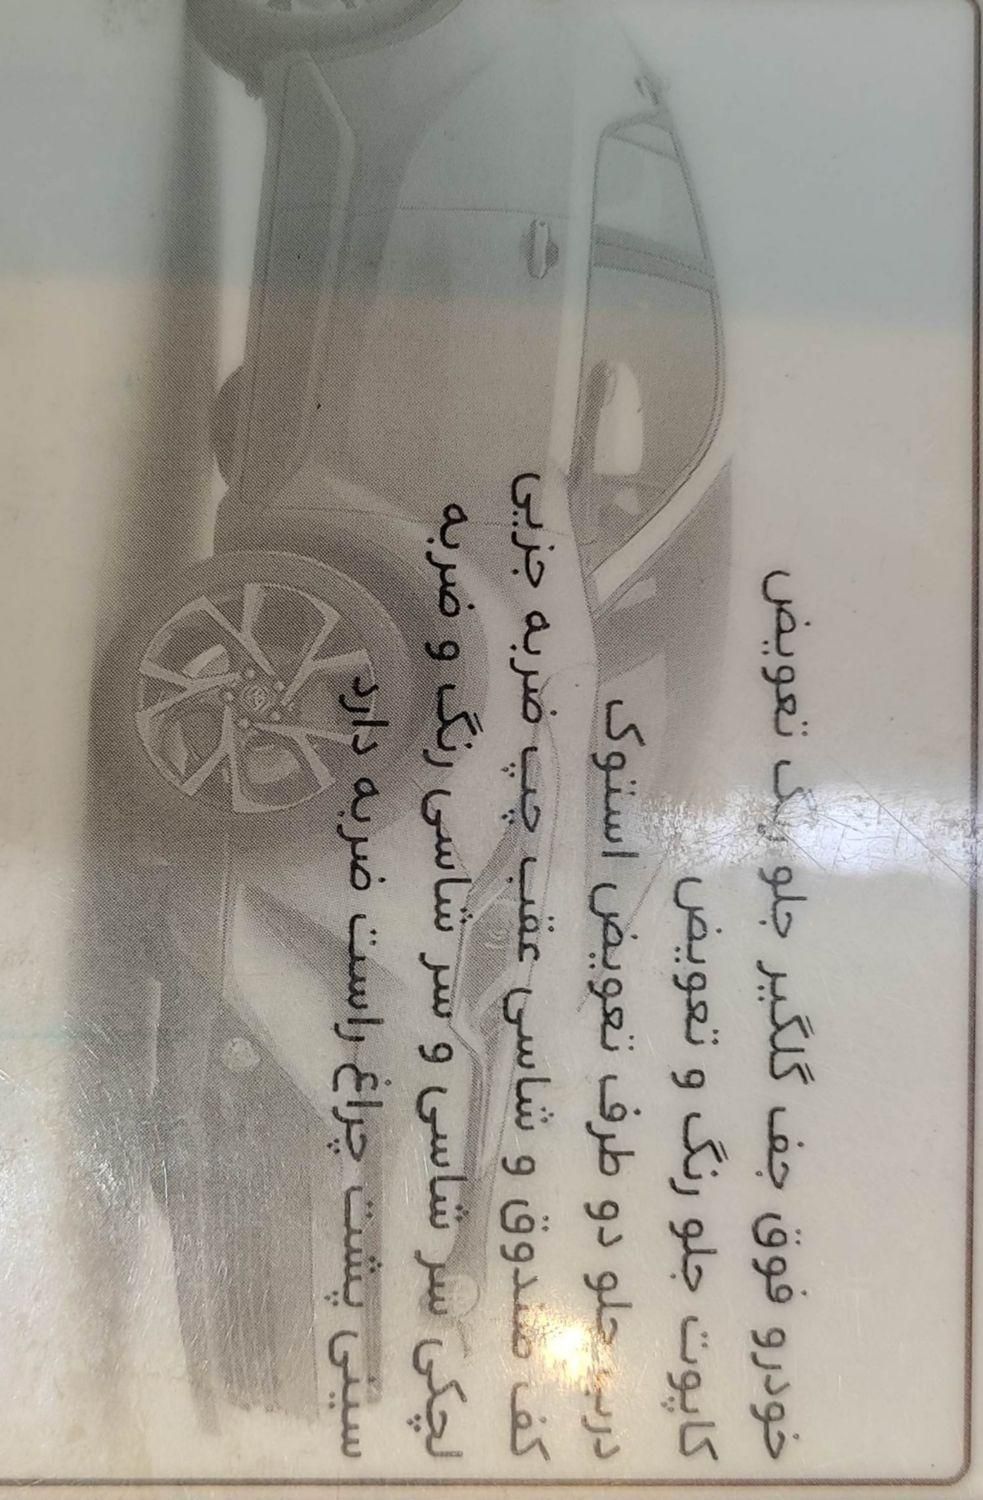 خودرو فوق جف گلگیر جلو رنگ تعویض
کاپوت جلو رنگ و تعویض
درب جلو دو طرف تعویض استوک
کف صندوق و شاسی عقب چپ ضربه جزیی
لچکی سر شاسی و سر شاسی رنگ و ضربه
سینی پشت چراغ راست ضربه دارد